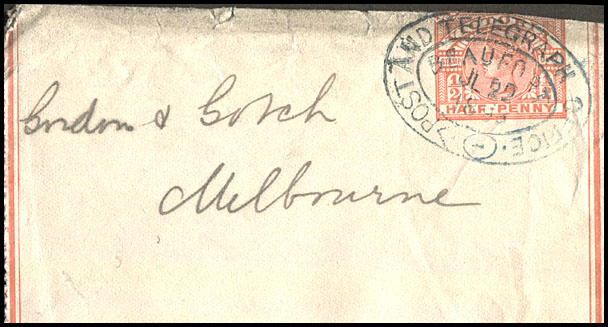 POST AND TELEGRAPH OFFICE.
BEAUFORT
JL 22
1/2 1/2
HALF-PENNY
Gordon & Gotch
Melbourne